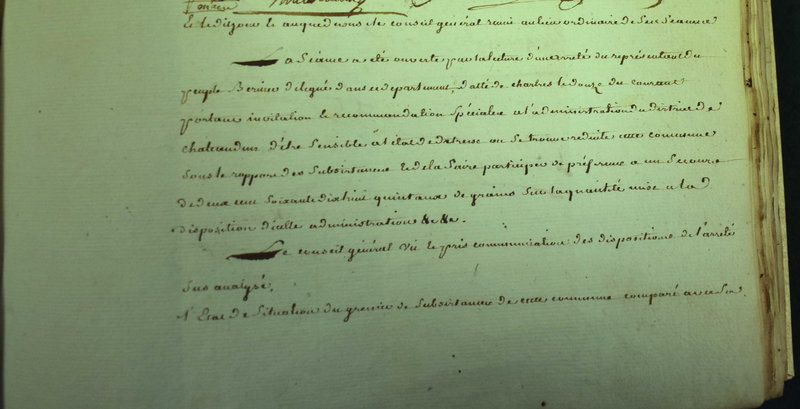 Et ledit jour le conseil général réuni au lieu ordinaire de ses séances
La Séance a été ouverte par la lecture d'un arrêté du représentant du
peuple Bernier délégué dans ce département, datté de chartres le douze du courant
portant invitation & recommandation Spéciale a l'administration du district de
chateaudun d'être Sensible à l'etat de detresse ou se trouve reduite cette commune
Sous le rapport des Subsistances & de la faire participer de préférence a un Secours
de deux cent soixante dix huit quintaux de grains sur la quantité mise a la
disposition d'icelle administration &c &c.
Le conseil général Vû & pris communication des dispositions de l'arrêté
sus analysé,
L'Etat de Situation du grenier de Subsistances de cette commune comparé avec Sa